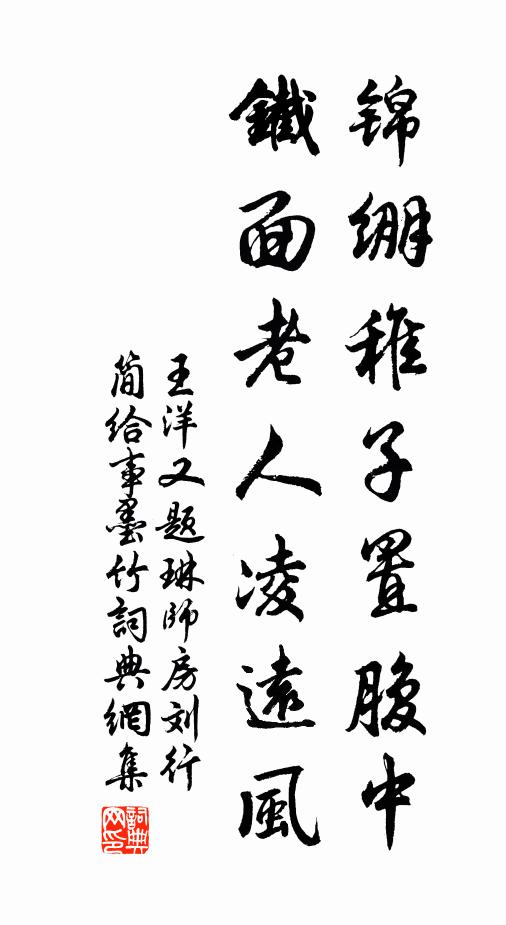 锦绷稚子置腹中
鐵面老人凌遠風
王洋又题琳师房刘行
简给事墨竹詞典網集
詞典網印